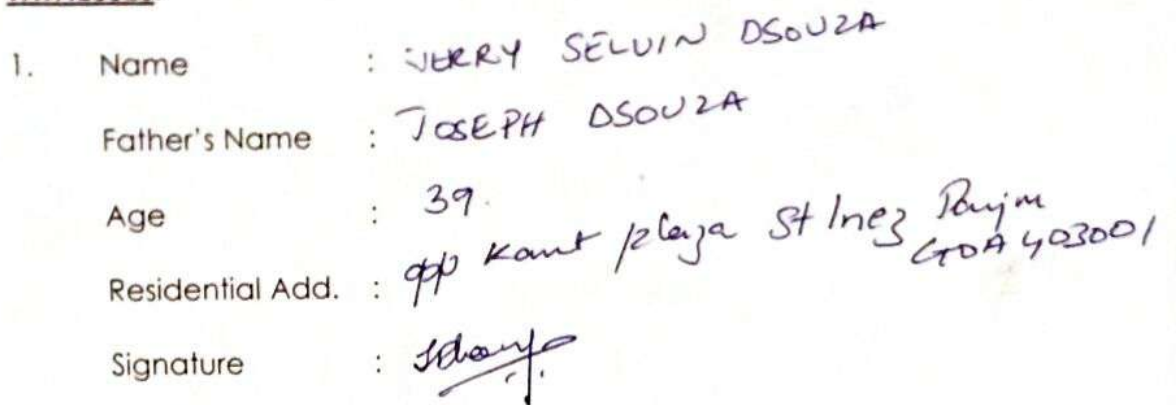 1. Name : JERRY SELVIN DSOUZA
Father's Name : JOSEPH DSOUZA
Age : 39.
Residential Add. : opp Kamt plaza St Inez Panjm
GOA 403001
Signature :